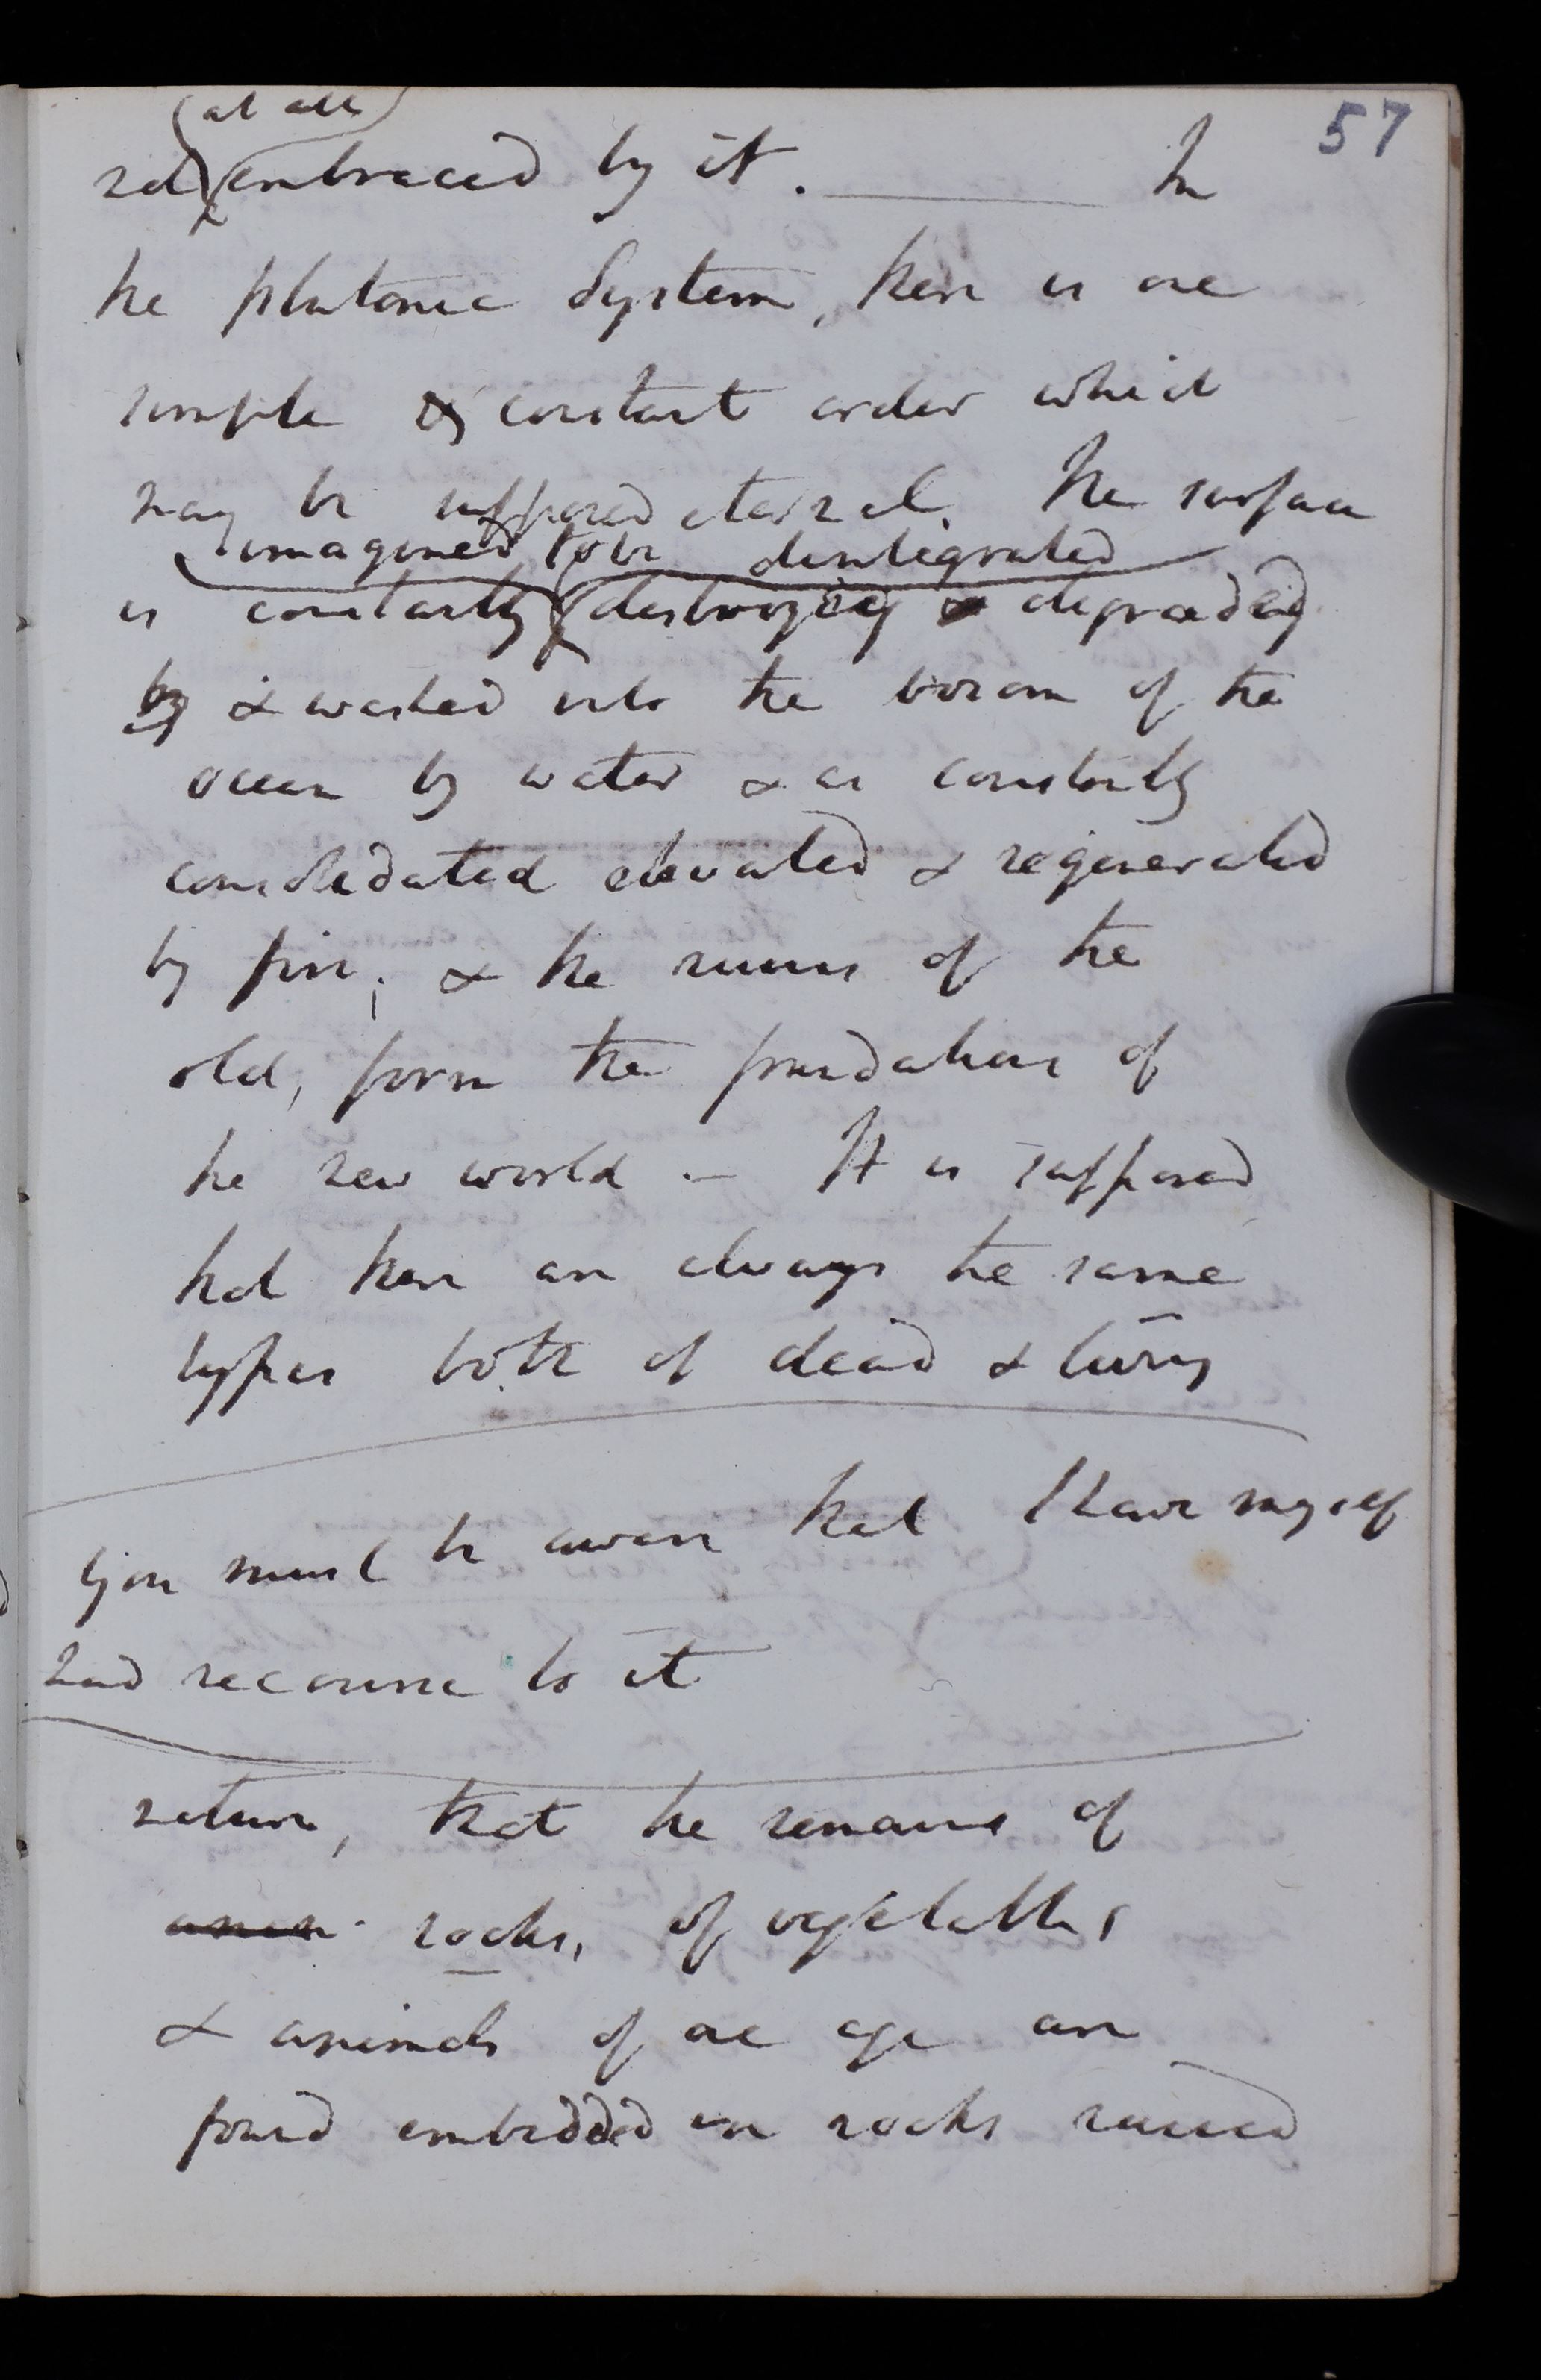 57
(at all)
not embraced by it. In
the plutonic system, there is one
simple & constant order which
may be supposed eternal. The surface
imagined to be disintegrated
is constantly destroying & degrading
by & washed into the bosom of the
ocean by water & as constantly
consolidated elevated & regenerated
by fire; & the ruins of the
old, form the foundations of
the new world. — It is supposed
that there are always the same
types both of dead & living
You must be aware that I have myself
had recourse to it
nature, that the remains of
rocks, of vegetables
& animals of one age are
found embedded in rocks raised